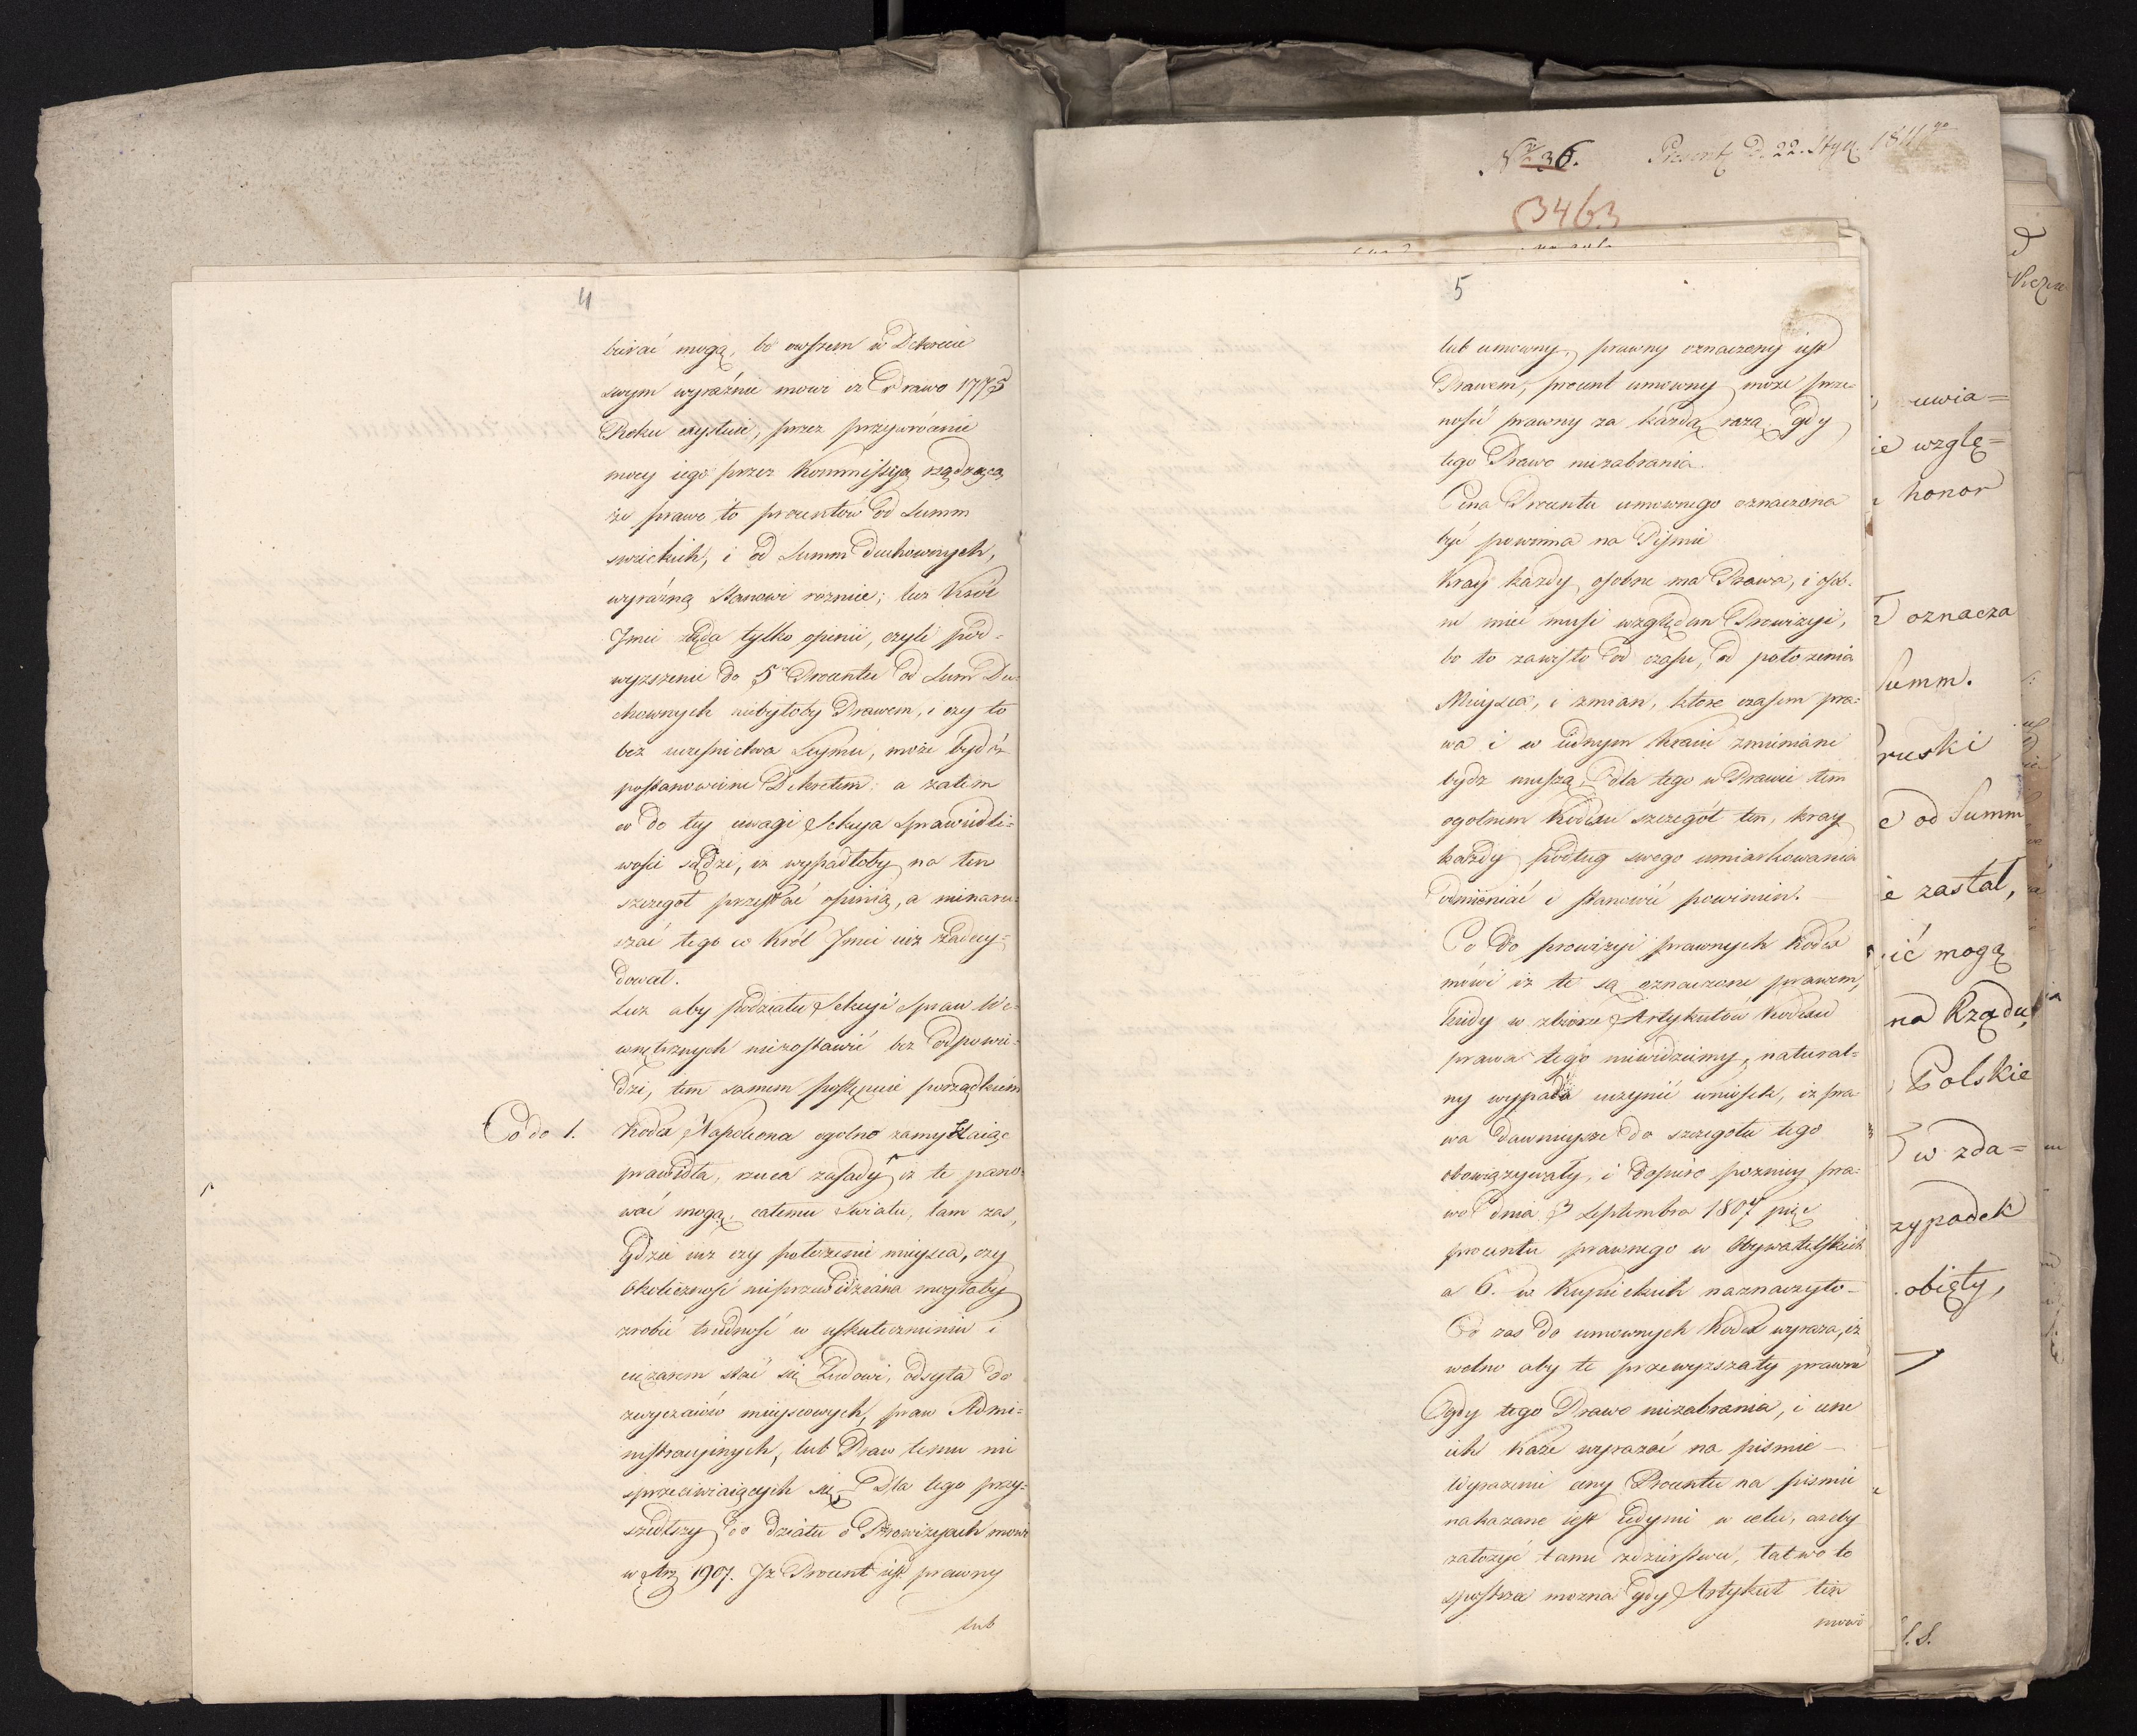 4
bierać mogą, bo owszem w Dekrecie
swym wyraźnie mowi iż Prawo 1775
Roku exystuie, przez przywrócenie
mocy iego przez Kommissyą rządzącą
że prawo to procentów od Summ
swieckich, i od Summ duchownych,
wyraźną stanowi roznicę; lecz Król
Jmci żąda tylko opinii, czyli pod-
wyzszenie do 5 Procentu od Sum Du-
chownych niebyłoby Prawem, i czy to
bez uczesnictwa Seymu, może bydź
postanowione Dekretem: a zatim
co do tey uwagi Sekcya Sprawiedli-
wości sądzi, iż wypadłoby na ten
szczegół przesłać opinią, a nienaru-
szać tego co Król Jmci iuż zadecy-
dował.
Lecz aby podziału Sekcyi Spraw We-
wnętrznych niezostawić bez odpowie-
dzi, tem samem postępuie porządkiem
Co do 1. Kodex Napoleona ogolne zamykaiąc
prawidła, rzuca zasady iż te pano-
wać mogą całemu Swiatu, tam zas,
gdzie iuż czy położenie mieysca, czy
okoliczność nieprzewidziana mogłaby
zrobić trudność w uskutecznieniu i
ciężarem stać się Ludowi, odsyła do
zwyczaiów mieyscowych, praw Admi-
nistracyinych, lub Praw temu nie
sprzeciwiaiących się. Dla tego przy-
szedłszy do działu o Prowizyach mowi
w Art 1907. Iż Procent iest prawny
lub
5
lub umowny, prawny oznaczony iest
Prawem, procent umowny może prze-
nosić prawny za każdą razą, gdy
tego Prawo niezabrania.
Cena Procentu umownego oznaczona
być powinna na Piśmie
Kray każdy osobne ma Prawa, i osob-
ne mieć musi względem Prowizyi,
bo to zawisło od czasu, od położenia
Mieysca, i zmian, które czasem pra-
wa i w iednym kraiu zmieniane
bydź muszą, dla tego w Prawie tem
ogolnem Kodexu szczegół ten, kray
każdy podług swego umiarkowania
odmieniać i stanowić powinien.
Co do prowizyi prawnych Kodex
mówi iż te są oznaczone prawem,
kiedy w zbiorze Artykułów Kodexu
prawa tego niewidziemy, natural-
ny wypada uczynić wniosek, iż pra-
wa dawnieysze do szczegołu tego
obowiązywały, i dopiero poznieysze pra-
wo dnia 3 Septembra 1807 pięć
procentu prawnego w Obywatelskich
a 6. w Kupieckich naznaczyło-
Co zas do umownych Kodex wyraza, iż
wolno aby te przewyzszały prawne
Gdy tego Prawo niezabrania, i cenę
ich każe wyrazać na pismie-
Wyrazenie ceny Procentu na pismie
nakazane iest iedynie w celu, azeby
założyć tamę zdzierstwu, łatwo to
spostrzec mozna gdy Artykuł ten
mowi
Nro 36. Present. D. 22. Stycz. 1811go
3463
uwia=
ie wzglę=
honor
oznacza
Summ.
Pruski
od Summ
ie zastał,
ić mogą
na Rządu,
Polskie
w zda=
zypadek
obięty,
S. S.